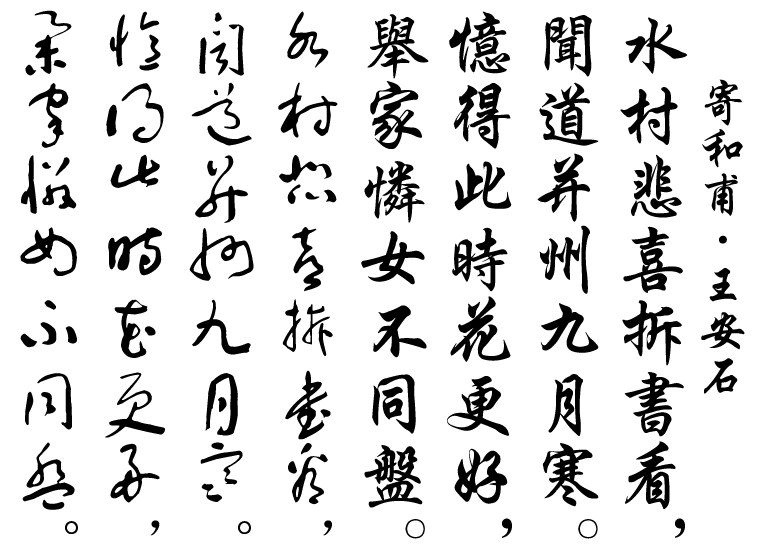 寄和甫·王安石
水村悲喜拆書看，
聞道并州九月寒。
憶得此時花更好，
舉家憐女不同盤。
水村悲喜拆書看，
聞道并州九月寒。
憶得此時花更好，
舉家憐女不同盤。